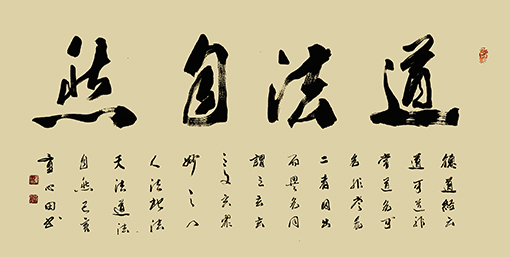 道法自然
德道經云
道可道非
常道名可
名非常名
二者同出
而異名同
謂之玄玄
之又玄眾
妙之门
人法地法
天法道法
自然己亥
心田书